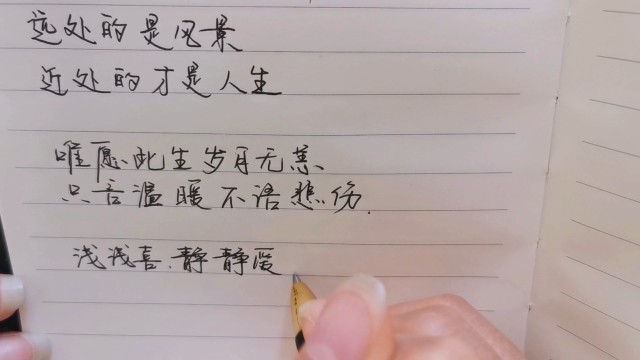 远处的是风景
近处的才是人生
唯愿此生岁月无恙
只言温暖不语悲伤.
浅浅喜.静静爱